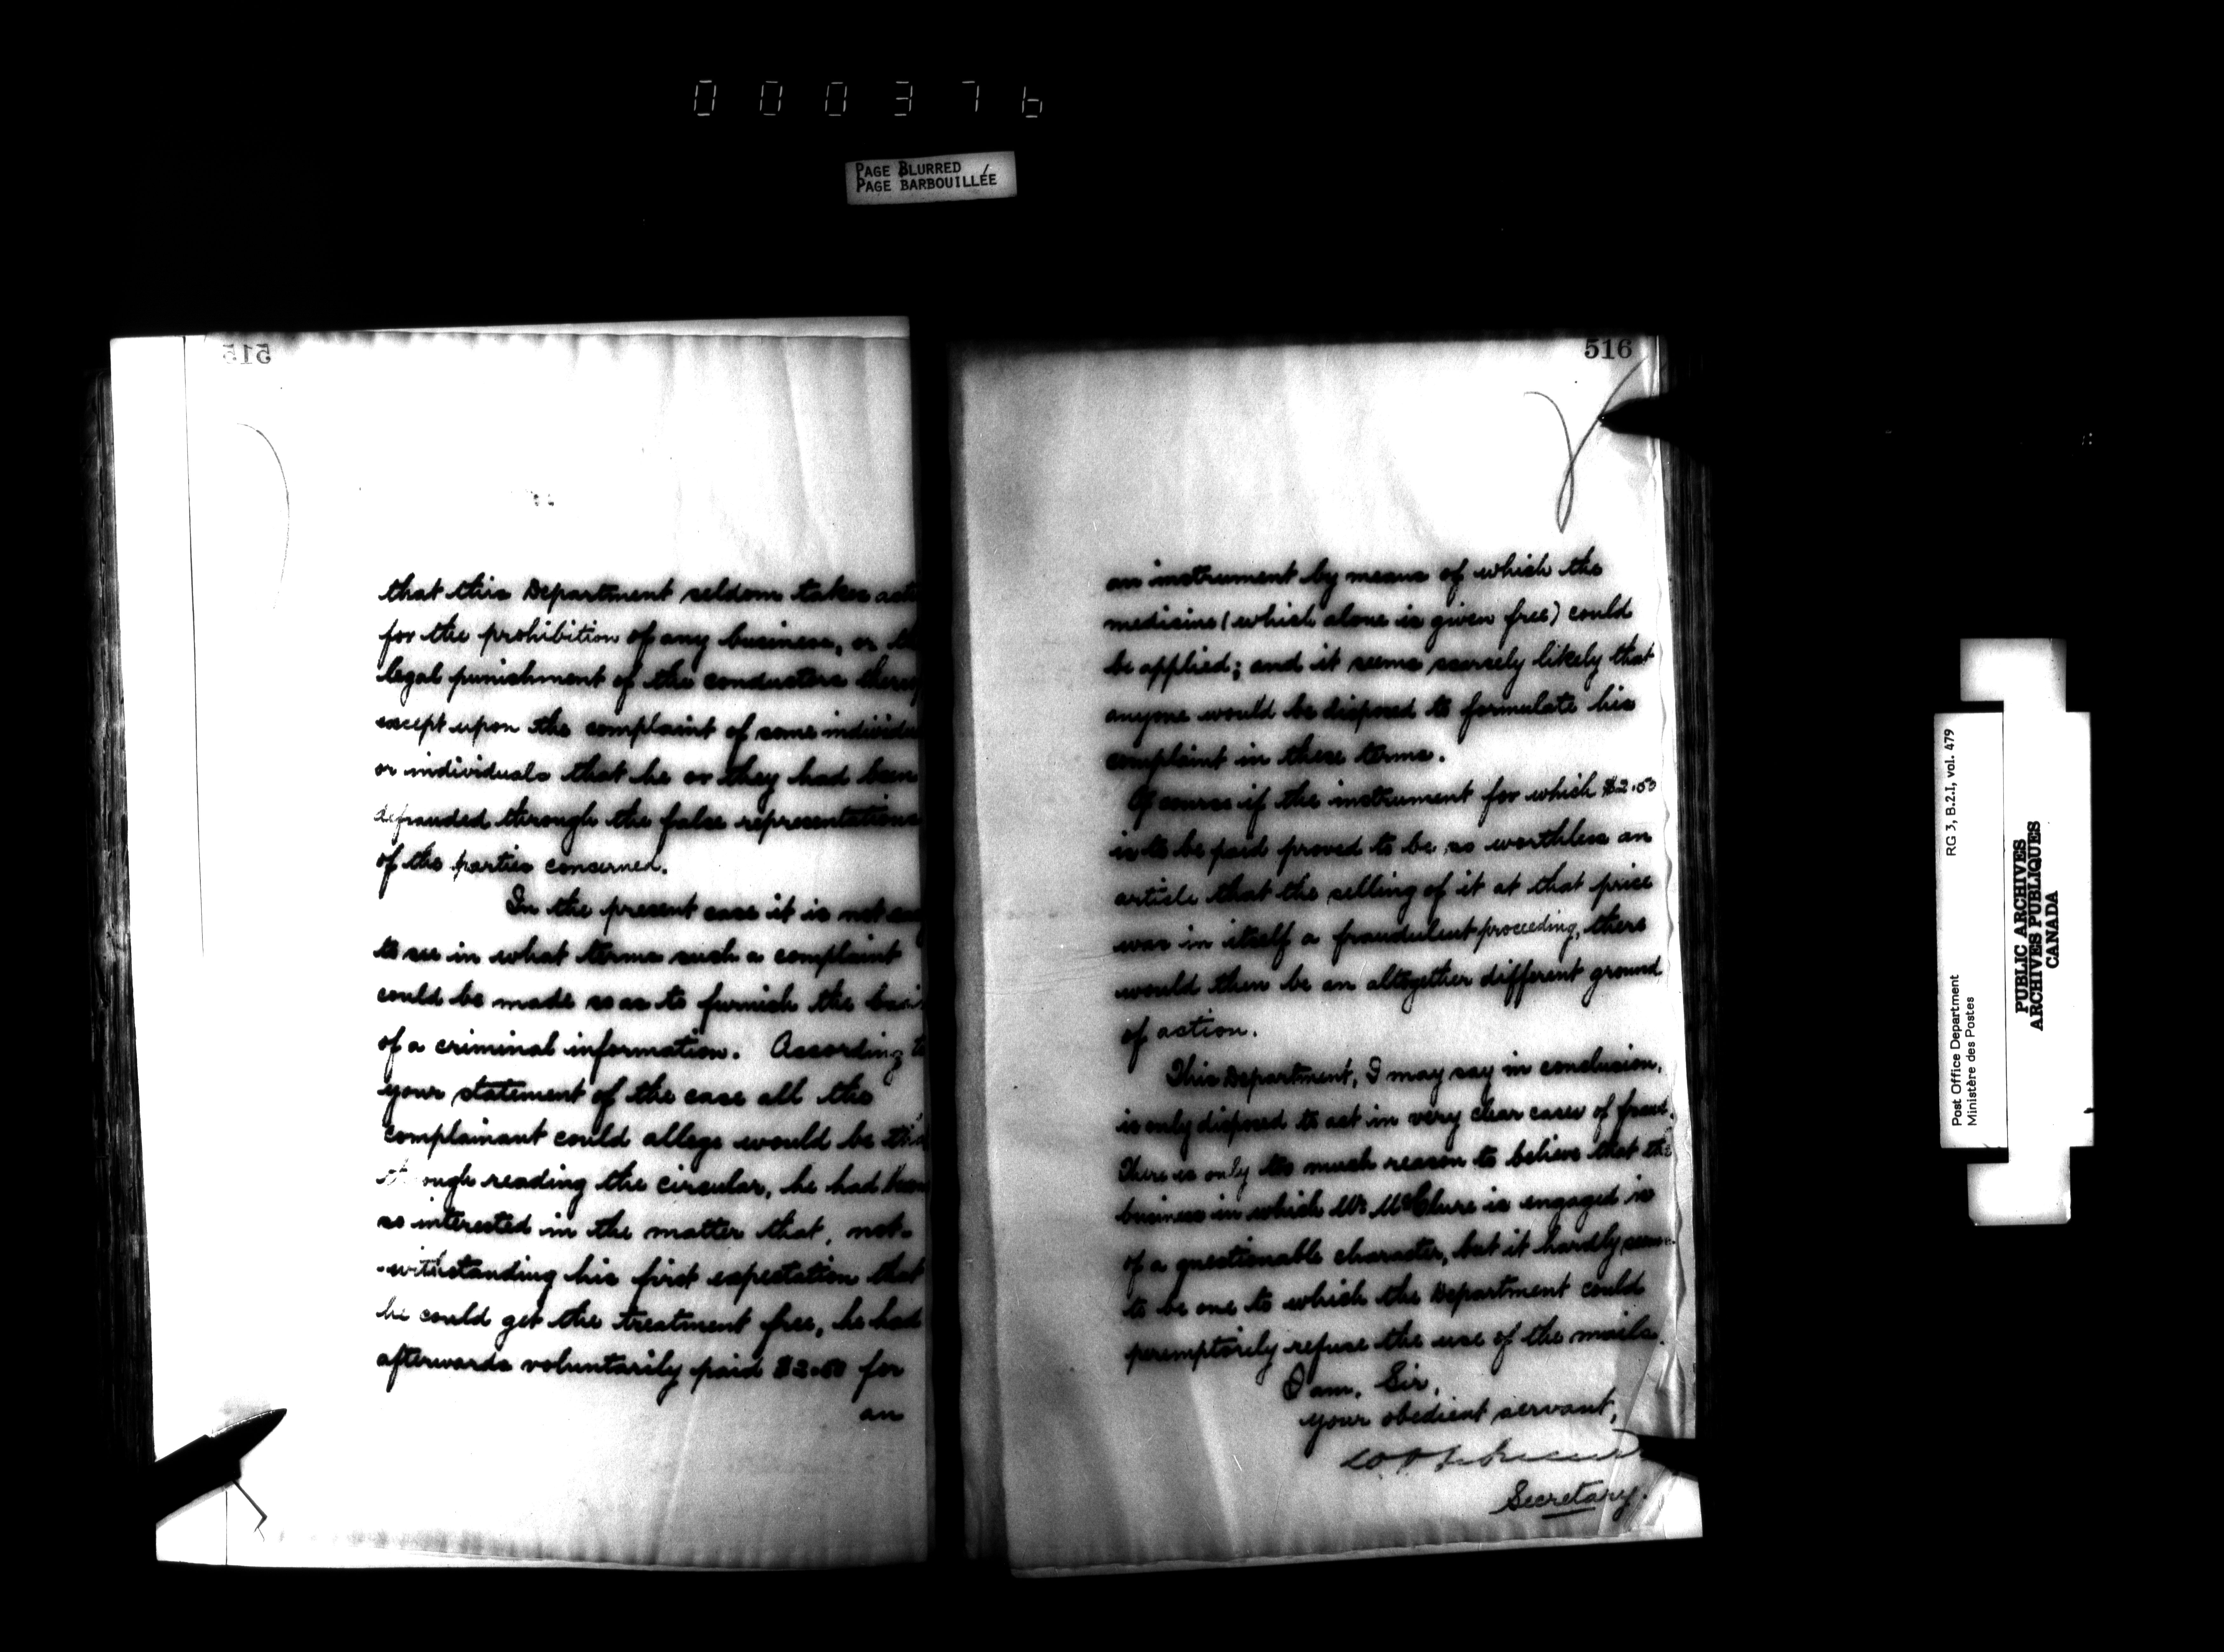 000376
PAGE BLURRED
PAGE BARBOUILLÉE
515
that this Department seldom takes
for the prohibition of any business, or
legal punishment of the conductors
except upon the complaint of some
or individuals that he or they had been
defrauded through the false representations
of the parties concerned.
In the present case it is not
to see in what terms such a complaint
could be made so as to furnish the
of a criminal information. According
your statement of the case all the
complainant could allege would be
reading the circular, he had
so interested in the matter that, not-
-withstanding his first expectation that
he could get the treatment free, he had
afterwards voluntarily paid $2.50 for
an
516
an instrument by means of which the
medicine (which alone is given free) could
be applied; and it seems scarcely likely that
anyone would be disposed to formulate his
complaint in these terms.
Of course if the instrument for which $2.50
is to be paid proved to be so worthless an
article that the selling of it at that price
was in itself a fraudulent proceeding, there
would then be an altogether different ground
of action.
This Department, I may say in conclusion,
is only disposed to act in very clear cases of fraud.
There is only too much reason to believe that the
business in which Mr McClure is engaged is
of a questionable character, but it hardly seems
to be one to which the Department could
peremptorily refuse the use of the mails.
I am, Sir,
your obedient servant,
Secretary.
Post Office Department
Ministère des Postes
RG 3, B.2.I, vol. 479
PUBLIC ARCHIVES
ARCHIVES PUBLIQUES
CANADA